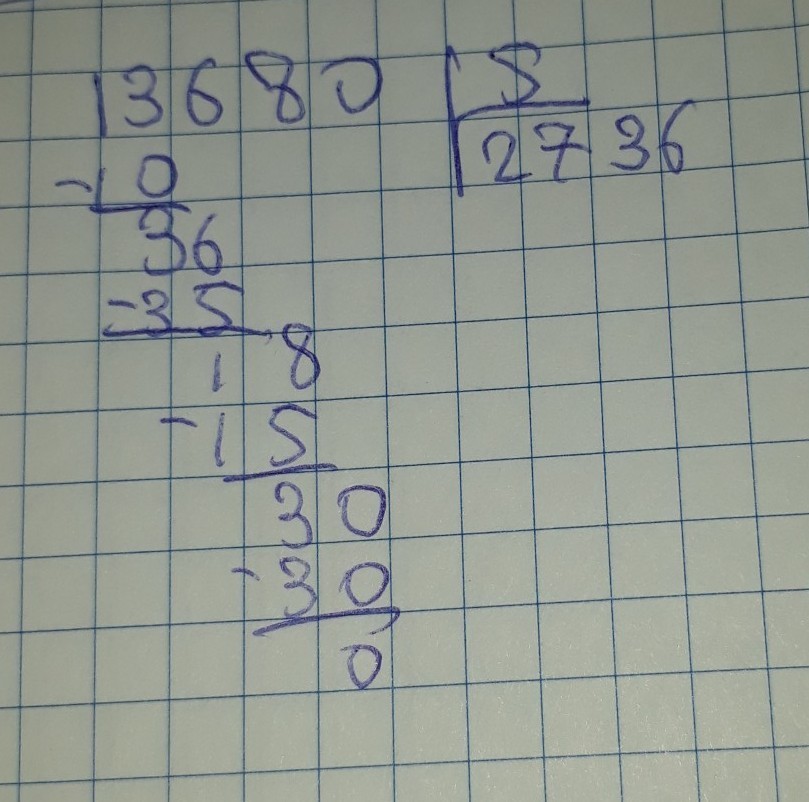 13680 5
2736
-10
36
-35
18
-15
30
-30
0